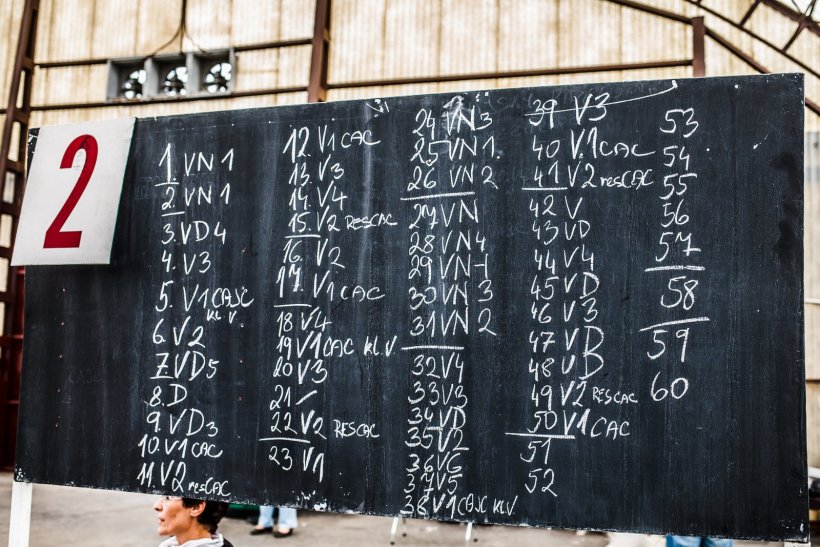 2
1. VN 1
2. VN 1
3. VD 4
4. V3
5. V1 CAJC
KL V
6. V2
7. VD5
8. D
9. VD3
10. V1 CAC
11. V2 RESCAC
12. V1 CAC
13. V3
14. V4
15. V2 RESCAC
16. V2
17. V1 CAC
18 V4
19 V1 CAC KL.V
20 V3
21 /
22 V2 RESCAC
23 V1
24 VN3
25 VN 1
26 VN 2
27 VN
28 VN4
29 VN-1
30 VN 3
31 VN 2
32 V4
33 V3
34 VD
35 V2
36 VG
37 V5
38 V1 CAJC KLV.
39 V3
40 V.1 CAC
41 V2 RESCAC
42 V
43 VD
44 V4
45 VD
46 V3
47 V
48 VB
49 V2 RESCAC
50 V1 CAC
51
52
53
54
55
56
57
58
59
60